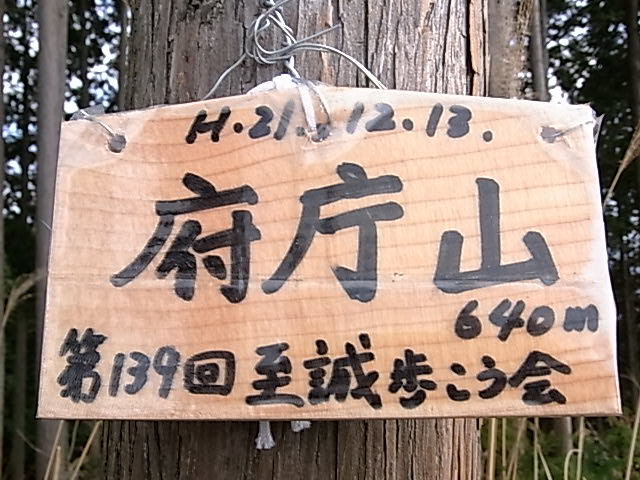 H.21.12.13.
府庁山
640m
第139回至誠歩こう会